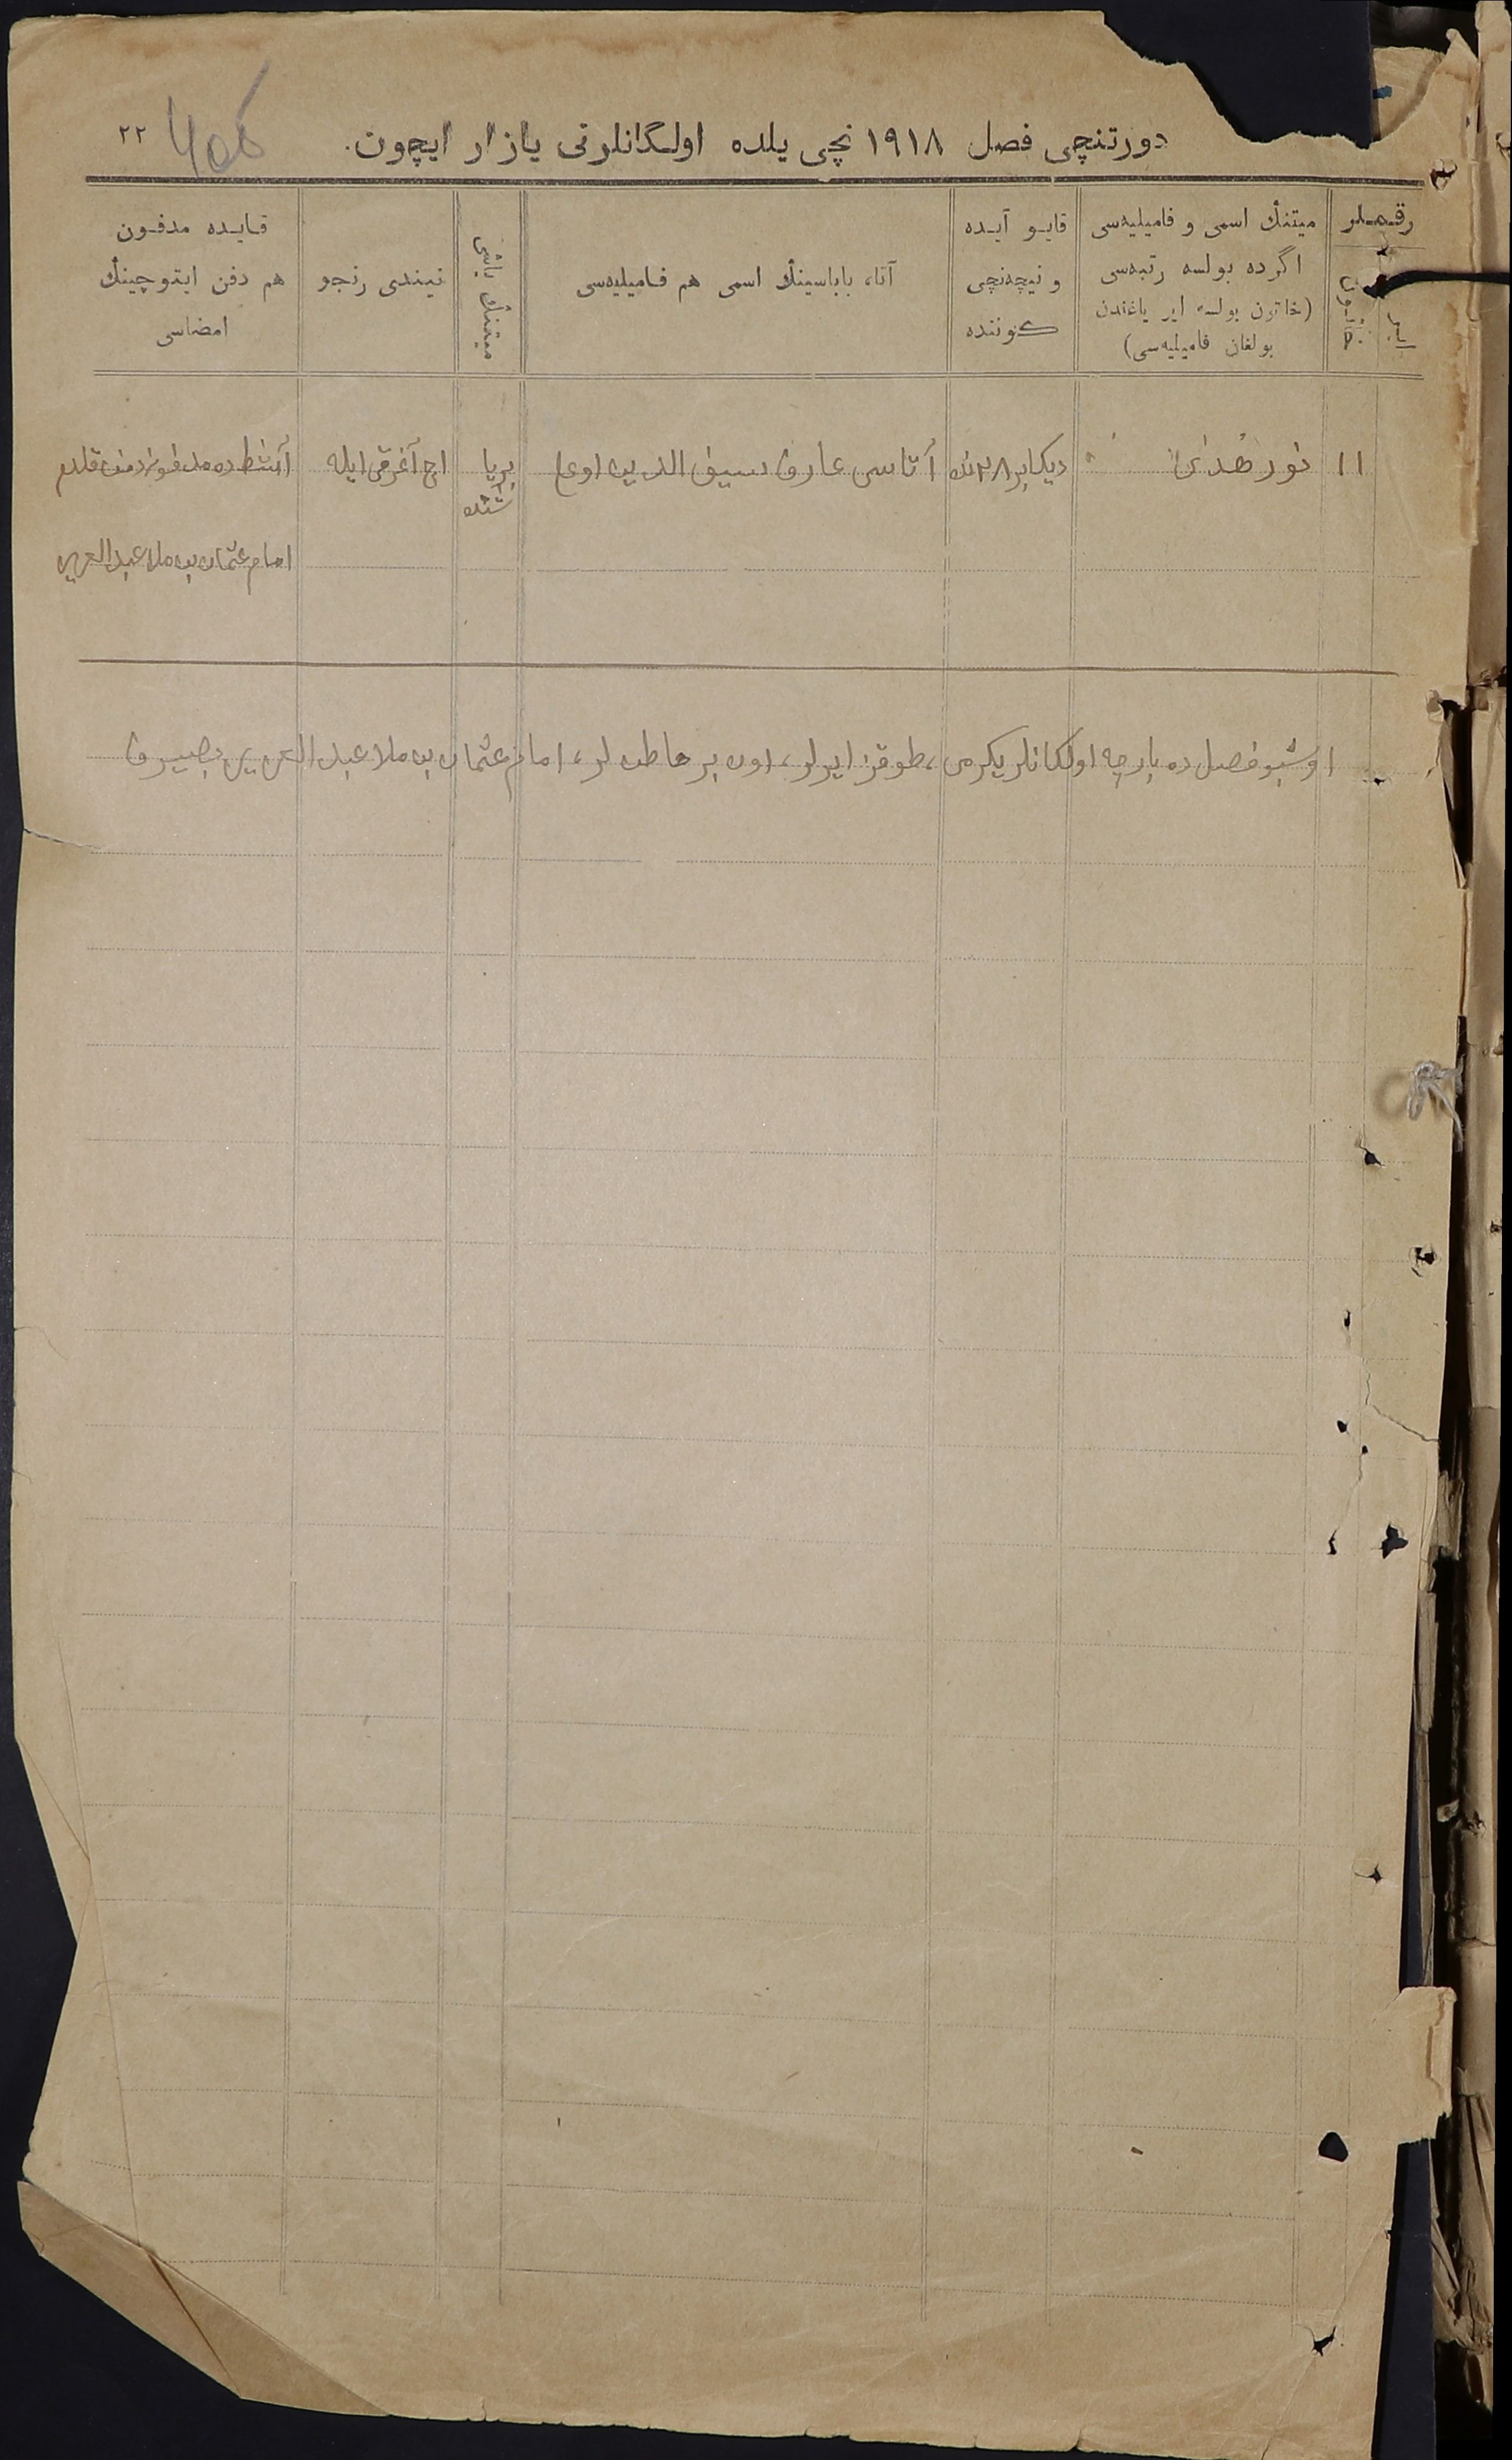 دورتنچی فصل ۱۹۱۸ نچی یلده اولگانلرنی یازار ایچون.
۲۲
رقملر
میتنڭ اسمی و فامیلیه‌سی
اگرده بولسه رتبه‌سی
(خاتون بولسه ایر یاغندن
بولغان فامیلیه‌سی)
قایو آیده
و نیچه‌نچی
کوننده
آتا، باباسینڭ اسمی هم فامیلیه‌سی
میتنڭ یاشی
نیندی رنجو
قایده مدفون
هم دفن ایتوچینڭ
امضاسی
۱۱
نور هدی
دیکابر ۲۸ نده
آتاسی عارف سیف الدین اوغلی
بر یا
شنده
اچ آغرقی ایله
ده مدفون دفن قلدم
امام عثمان بن ملا عبدالعزیز
اوشبو فصل ده بارچه اولکانلر یکرمی، طوقز ایرلر، اون بر خاطن لر، امام عثمان بن ملا عبد العزیز بصیروف